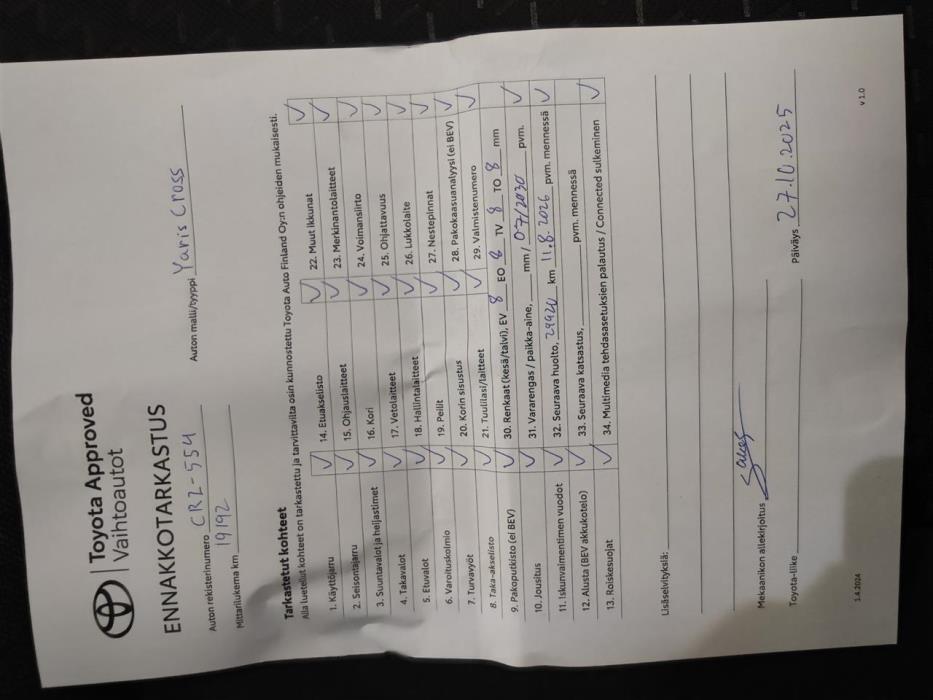 Toyota Approved
Vaihtoautot
ENNAKKOTARKASTUS
Auton rekisterinumero CRZ-554 Auton malli/tyyppi Yaris Cross
Mittarilukema km 19192
Tarkastetut kohteet
Alla luetellut kohteet on tarkastettu ja tarvittavilta osin kunnostettu Toyota Auto Finland Oy:n ohjeiden mukaisesti.
1. Käyttöjarru ✓ 14. Etuakselisto ✓ 22. Muut ikkunat ✓
2. Seisontajarru ✓ 15. Ohjauslaitteet ✓ 23. Merkinantolaitteet ✓
3. Suuntavalot ja heijastimet ✓ 16. Kori ✓ 24. Voimansiirto ✓
4. Takavalot ✓ 17. Vetolaitteet ✓ 25. Ohjattavuus ✓
5. Etuvalot ✓ 18. Hallintalaitteet ✓ 26. Lukkolaite ✓
6. Varoituskolmio ✓ 19. Peilit ✓ 27. Nestepinnat ✓
7. Turvavyöt ✓ 20. Korin sisustus ✓ 28. Pakokaasuanalyysi (ei BEV) ✓
8. Taka-akselisto ✓ 21. Tuulilasi/laitteet ✓ 29. Valmistenumero ✓
9. Pakoputkisto (ei BEV) ✓ 30. Renkaat (kesä/talvi), EV 8 EO 8 TV 8 TO 8 mm
10. Jousitus ✓ 31. Vararengas / paikka-aine, mm / 07/2030 pvm. ✓
11. Iskunvaimentimen vuodot ✓ 32. Seuraava huolto, 29920 km 11.8.2026 pvm. mennessä ✓
12. Alusta (BEV akkukotelo) ✓ 33. Seuraava katsastus, pvm. mennessä
13. Roiskesuojat ✓ 34. Multimedia tehdasasetuksien palautus / Connected sulkeminen ✓
Lisäselvityksiä:
Mekaanikon allekirjoitus
Toyota-liike Päiväys 27.10.2025
1.4.2024 v 1.0